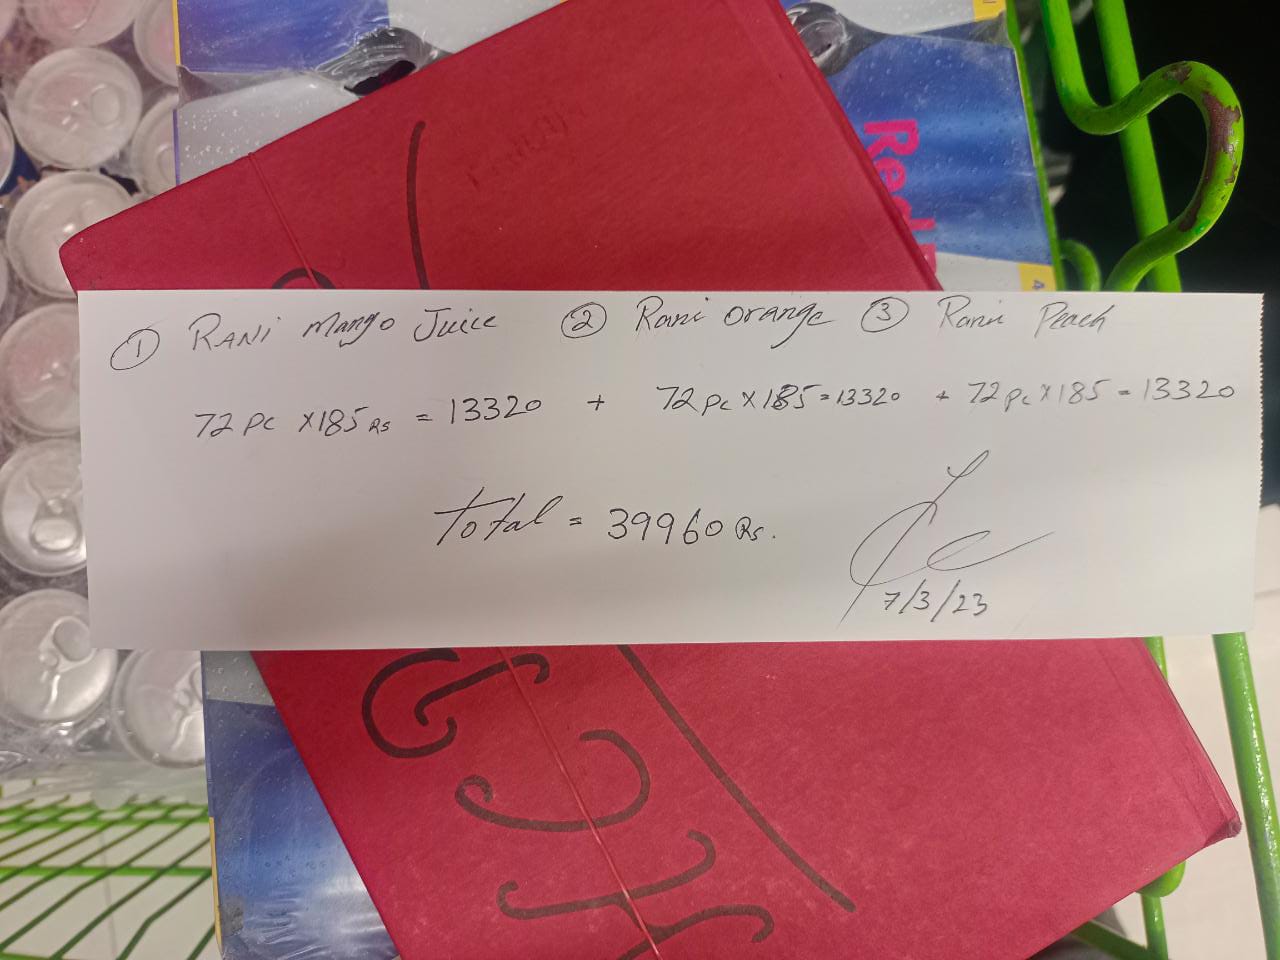 ① RANI Mango Juice ② Rani orange ③ Rani Peach
72 Pc X185 Rs = 13320 + 72 Pc X 185 = 13320 + 72 Pc X 185 = 13320
Total = 39960 Rs.
7/3/23
Red